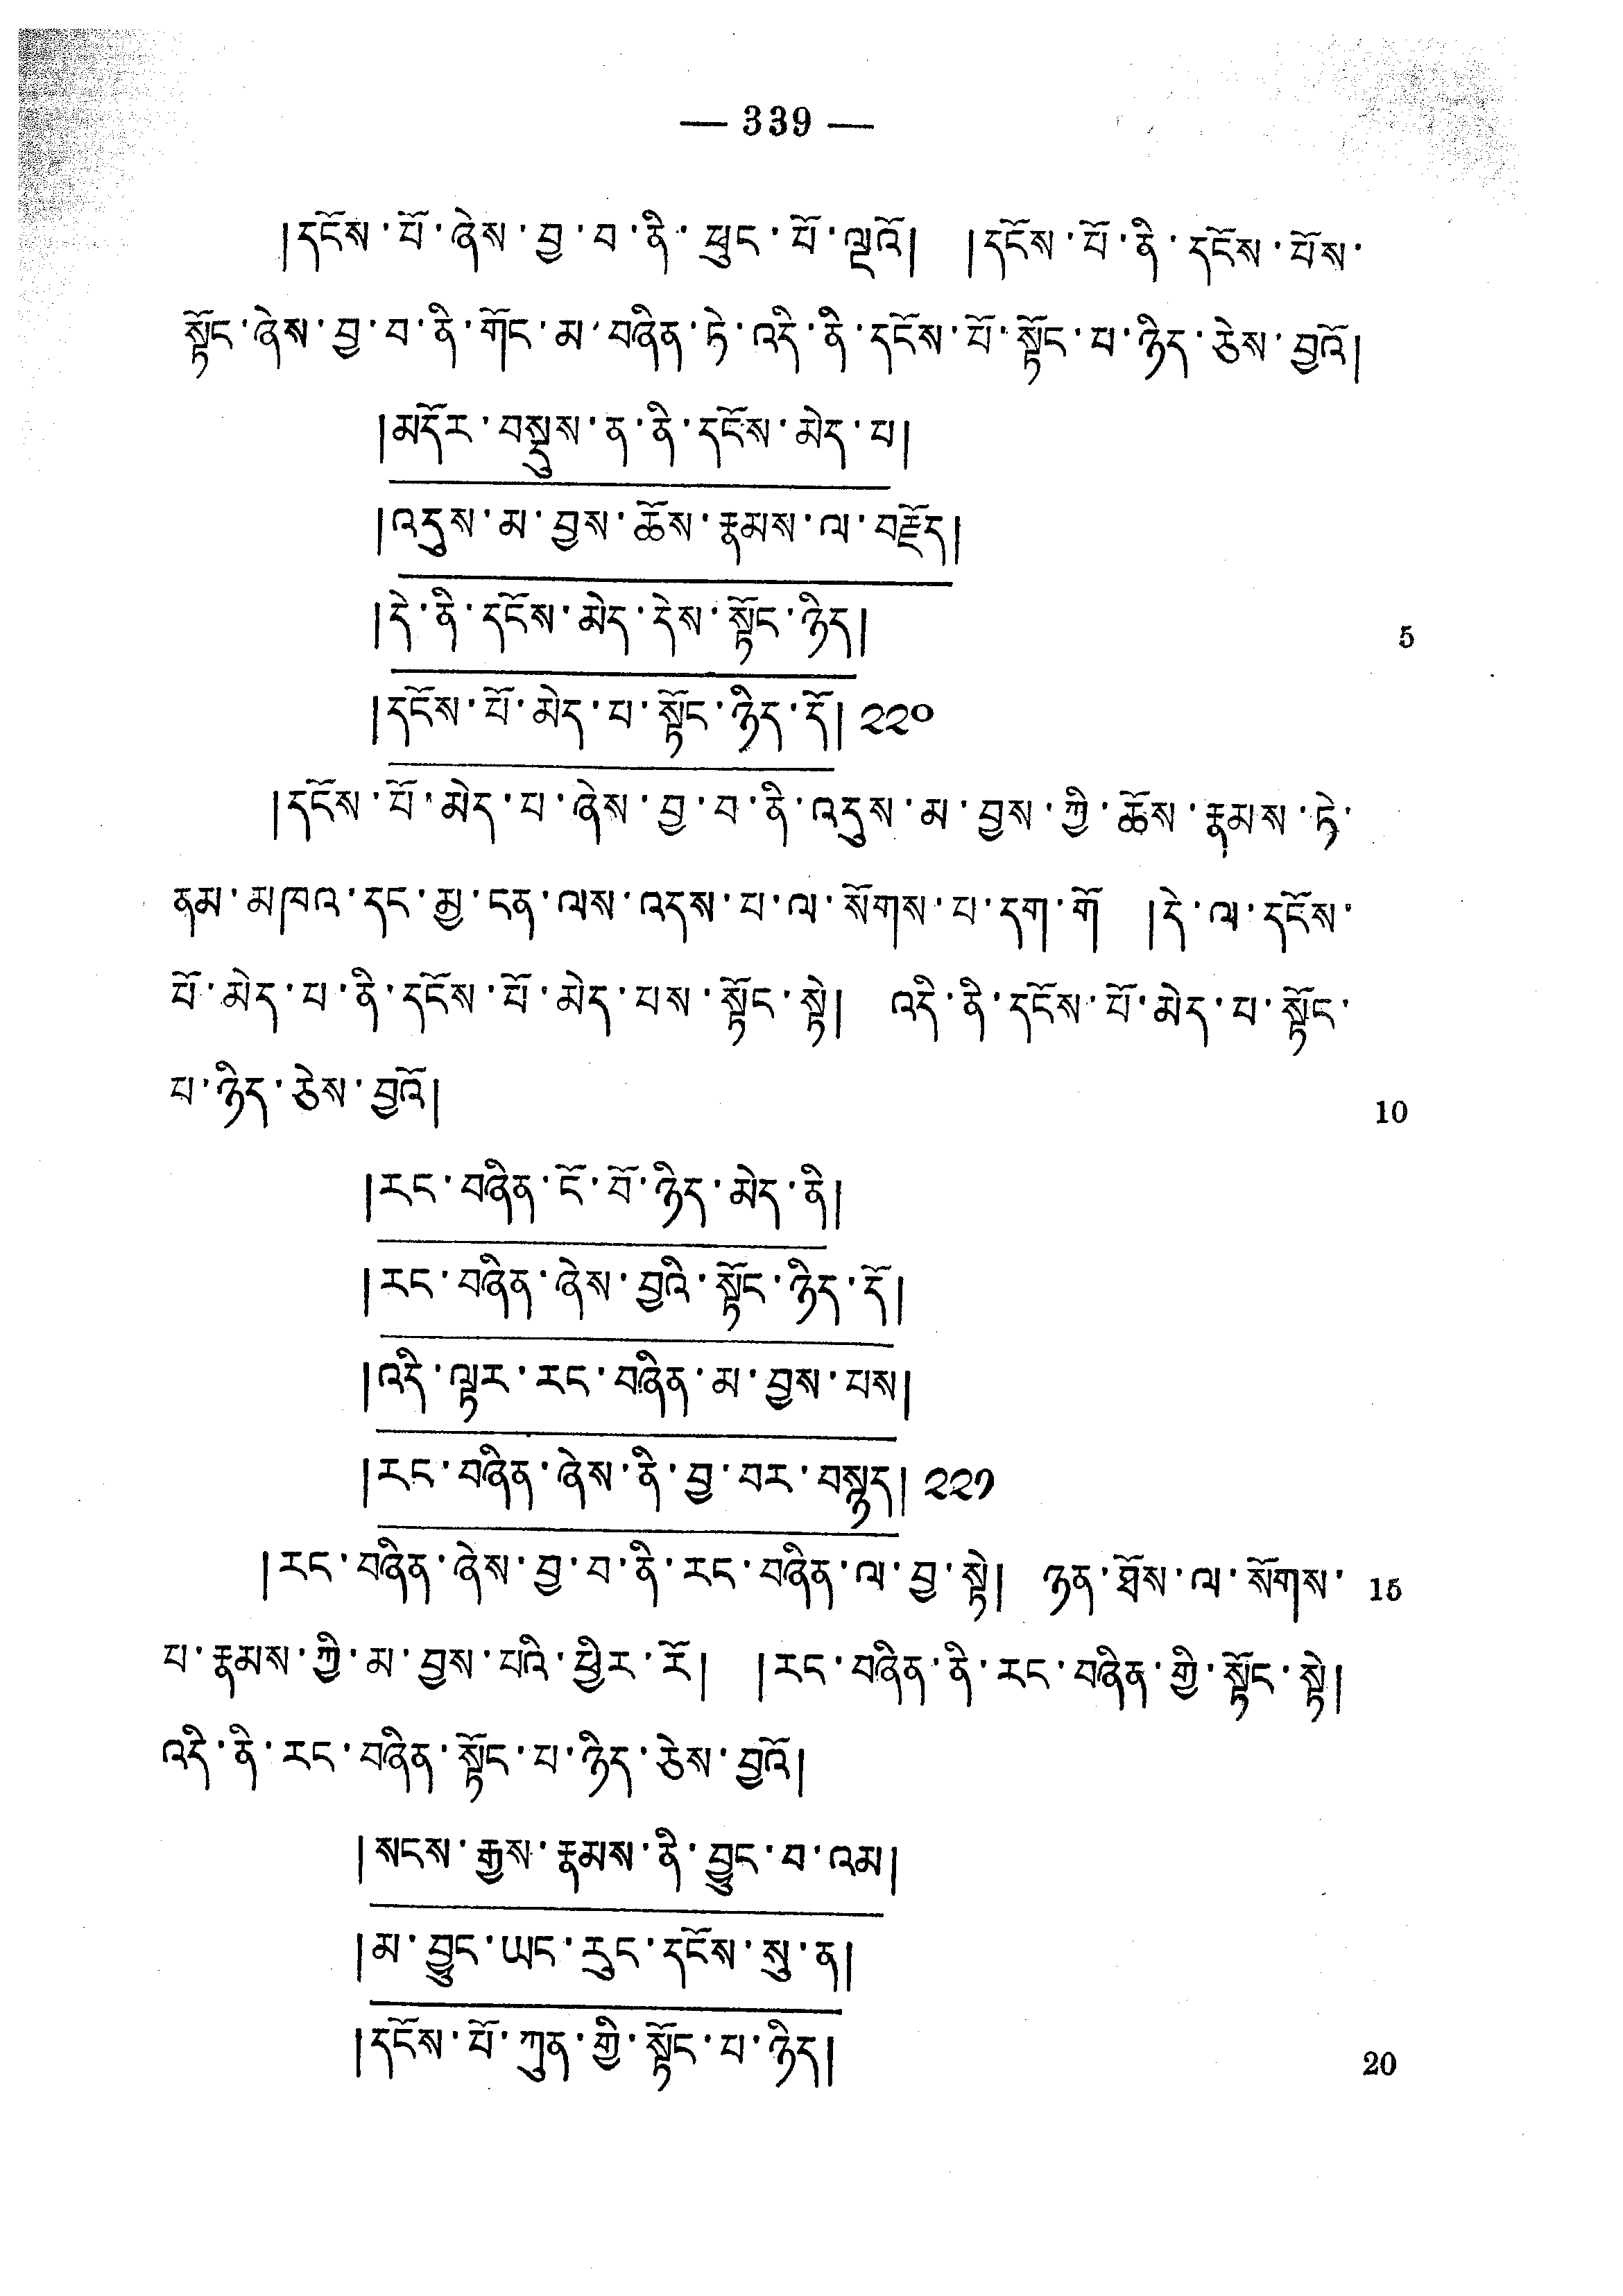 — 339 —
།དངོས་པོ་ཞེས་བྱ་བ་ནི་ཕུང་པོ་ལྔའོ། །དངོས་པོ་ནི་དངོས་པོས་
སྟོང་ཞེས་བྱ་བ་ནི་གོང་མ་བཞིན་ཏེ་འདི་ནི་དངོས་པོ་སྟོང་པ་ཉིད་ཅེས་བྱའོ།
།མདོར་བསྡུས་ན་ནི་དངོས་མེད་པ།
།འདུས་མ་བྱས་ཆོས་རྣམས་ལ་བརྗོད།
།དེ་ནི་དངོས་མེད་དེས་སྟོང་ཉིད། 5
།དངོས་པོ་མེད་པ་སྟོང་ཉིད་དོ། ༢༢༠
།དངོས་པོ་མེད་པ་ཞེས་བྱ་བ་ནི་འདུས་མ་བྱས་ཀྱི་ཆོས་རྣམས་ཏེ་
ནམ་མཁའ་དང་མྱ་ངན་ལས་འདས་པ་ལ་སོགས་པ་དག་གོ །དེ་ལ་དངོས་
པོ་མེད་པ་ནི་དངོས་པོ་མེད་པས་སྟོང་སྟེ། འདི་ནི་དངོས་པོ་མེད་པ་སྟོང་
པ་ཉིད་ཅེས་བྱའོ། 10
།རང་བཞིན་ངོ་བོ་ཉིད་མེད་ནི།
།རང་བཞིན་ཞེས་བྱའི་སྟོང་ཉིད་དོ།
།འདི་ལྟར་རང་བཞིན་མ་བྱས་པས།
།རང་བཞིན་ཞེས་ནི་བྱ་བར་བསྙད། ༢༢༡
།རང་བཞིན་ཞེས་བྱ་བ་ནི་རང་བཞིན་ལ་བྱ་སྟེ། ཉན་ཐོས་ལ་སོགས་ 15
པ་རྣམས་ཀྱི་མ་བྱས་པའི་ཕྱིར་རོ། །རང་བཞིན་ནི་རང་བཞིན་གྱི་སྟོང་སྟེ།
འདི་ནི་རང་བཞིན་སྟོང་པ་ཉིད་ཅེས་བྱའོ།
།སངས་རྒྱས་རྣམས་ནི་བྱུང་བ་འམ།
།མ་བྱུང་ཡང་རུང་དངོས་སུ་ན།
།དངོས་པོ་ཀུན་གྱི་སྟོང་པ་ཉིད། 20